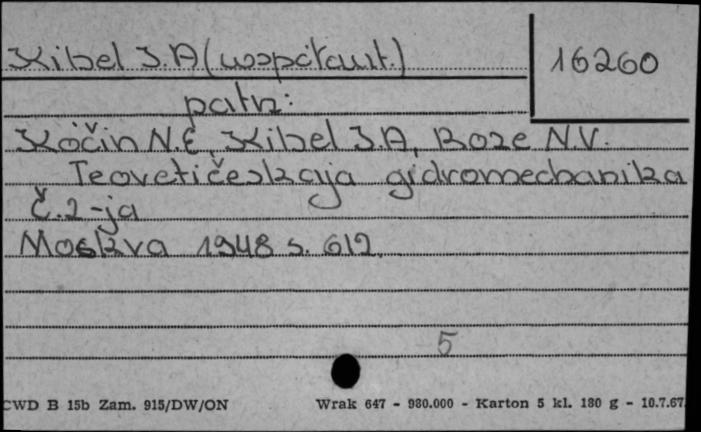 Kibel I.A (współaut.)
16260
patrz:
Kočin N.E, Kibel I.A, Roze N.V.
Teoretičeskaja gidromechanika
č.2-ja
Moskva 1948 s. 612.
5
CWD B 15b Zam. 915/DW/ON Wrak 647 - 980.000 - Karton 5 kl. 180 g - 10.7.67.